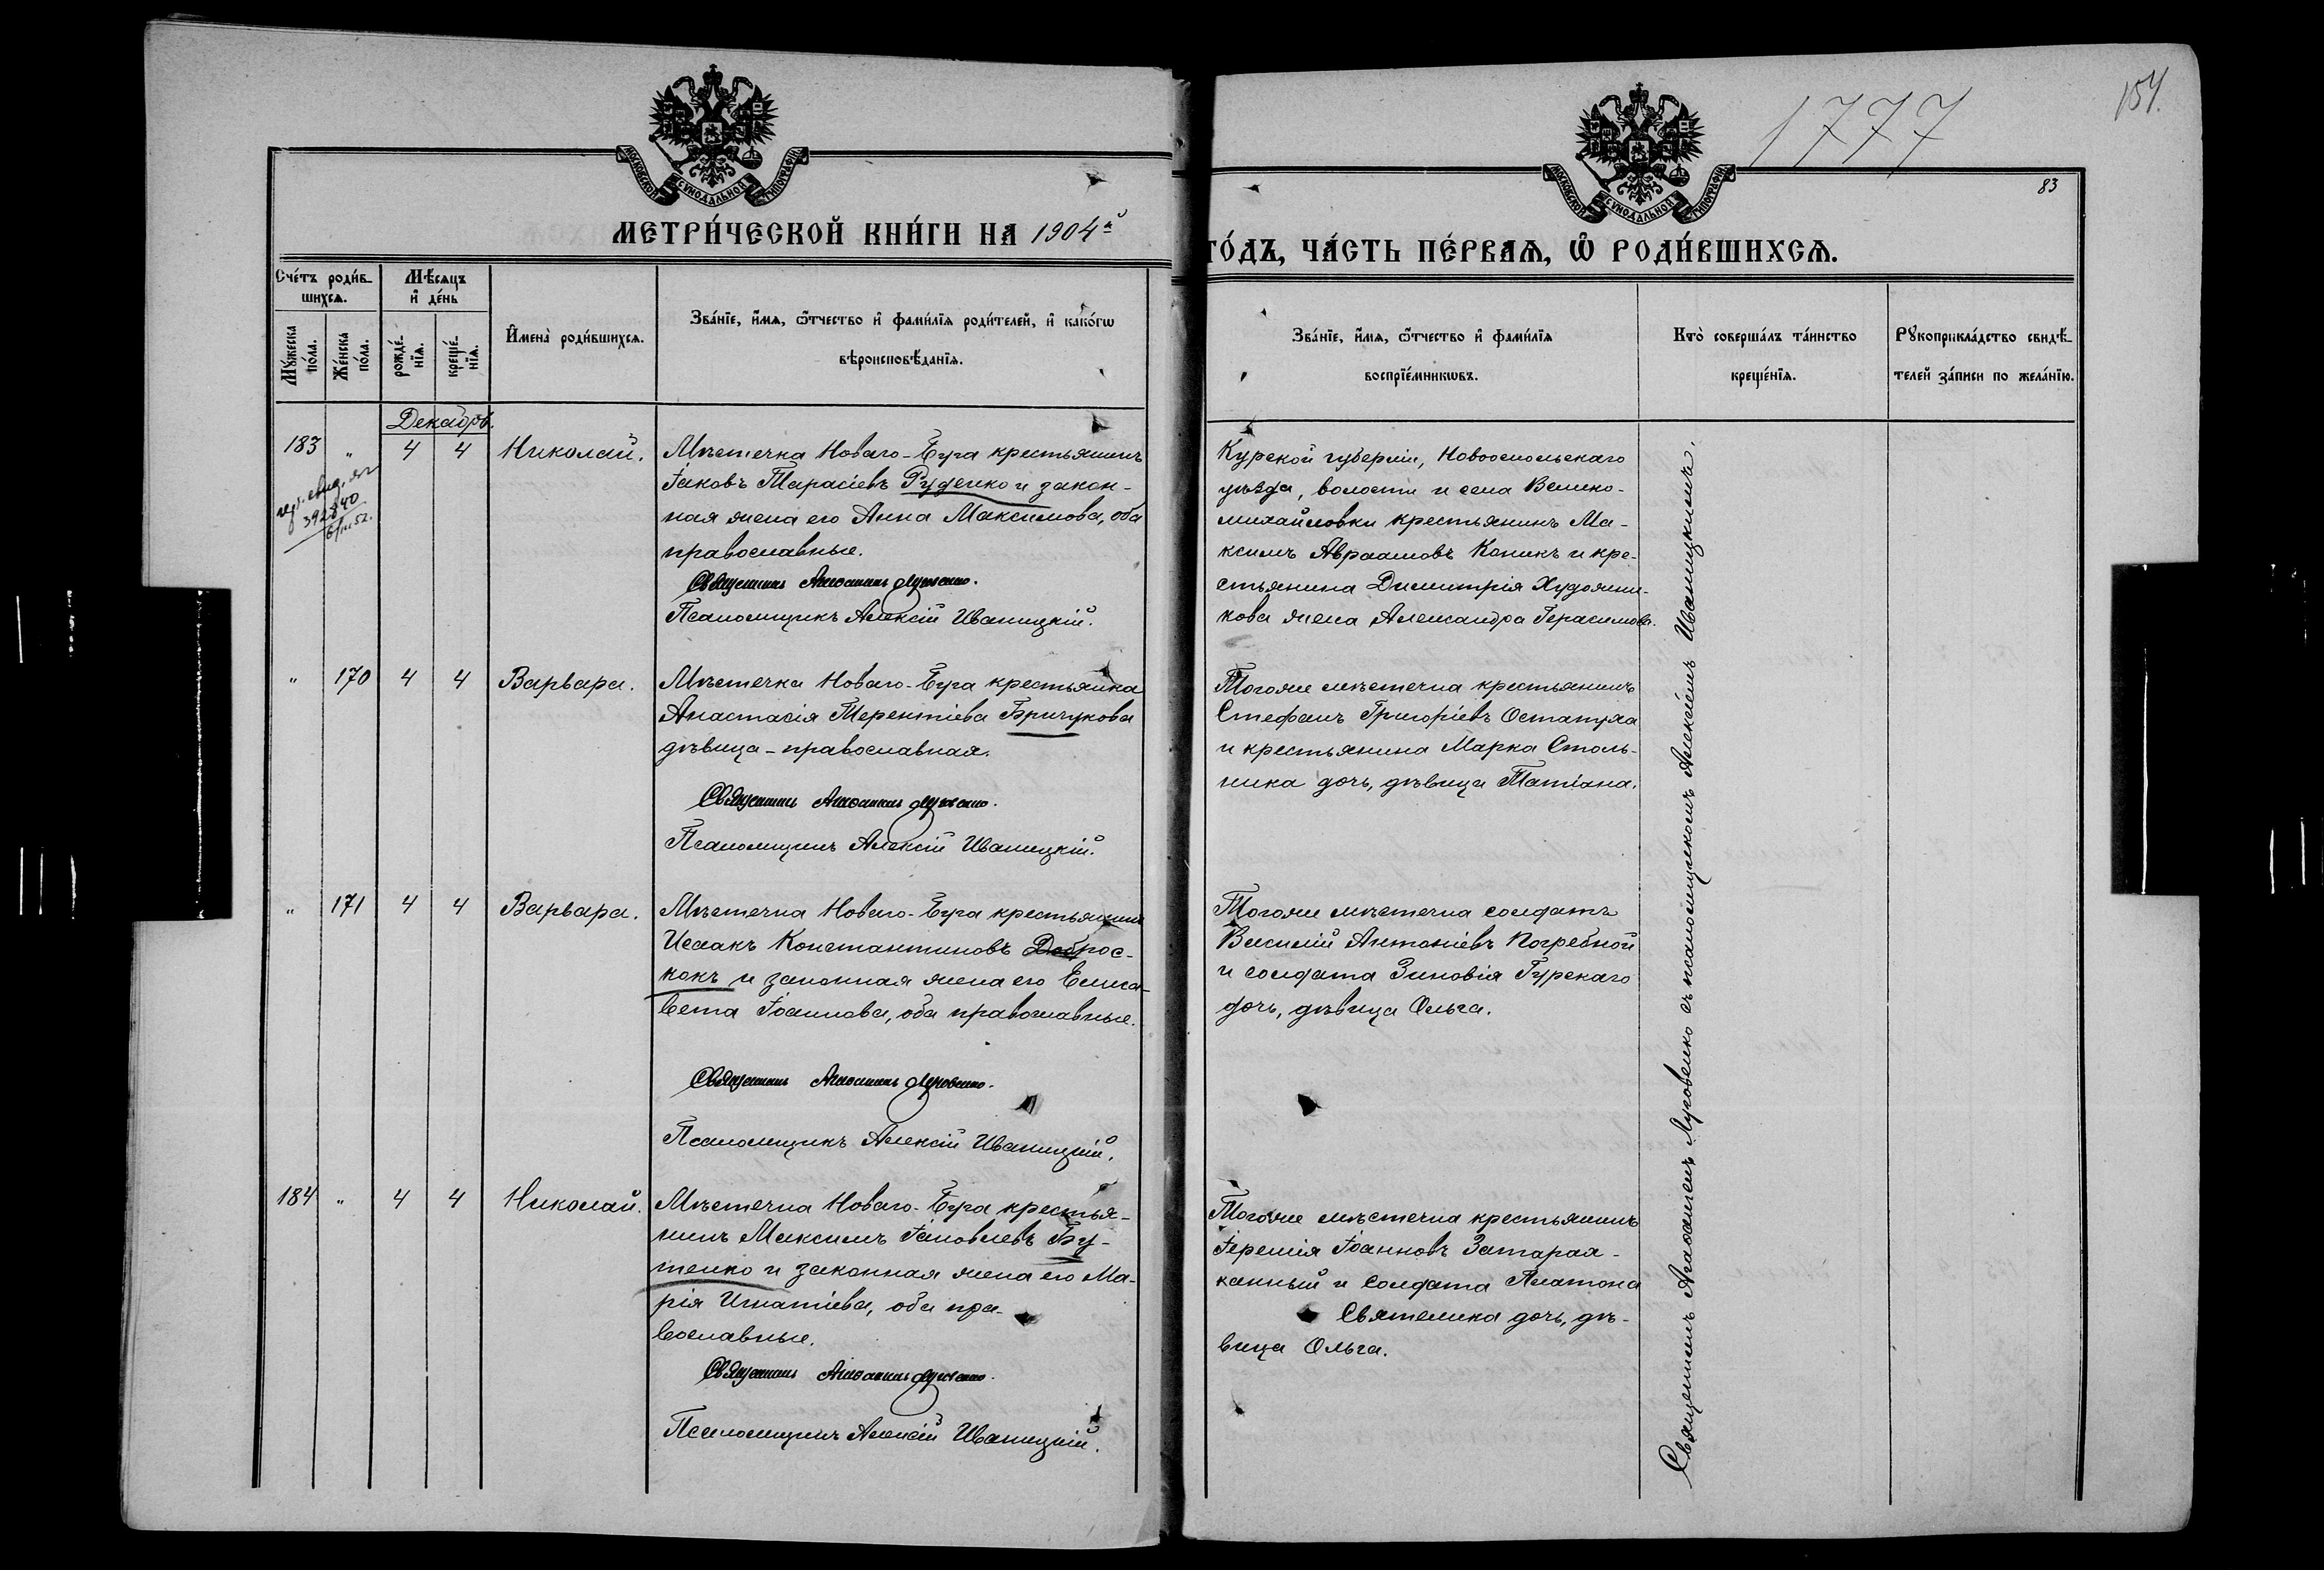 1777
154.
83
МОСКОВСКОЙ СѴНОДАЛЬНОЙ ТИПОГРАФІИ
МОСКОВСКОЙ СѴНОДАЛЬНОЙ ТИПОГРАФІИ
МЕТРИ́ЧЕСКОЙ КНИ́ГИ НА 1904й
ГО́ДЪ, ЧА́СТЬ ПЕ́РВАѦ, Ѡ҆ РОДИ́ВШИХСѦ.
Сче́тъ роди́в-
шихсѧ.
Мꙋ́жеска по́ла.
Же́нска по́ла.
Мѣ́сѧцъ
и҆ де́нь
рожде́-нїѧ.
креще́-нїѧ.
И҆мена̀ роди́вшихсѧ.
Зва́нїе, и҆́мѧ, ѻ҆́тчество и҆ фами́лїѧ роди́телей, и҆ како́гѡ
вѣроисповѣ́данїѧ.
Зва́нїе, и҆́мѧ, ѻ҆́тчество и҆ фами́лїѧ
воспрїе́мникѡвъ.
Кто̀ соверша́лъ та́инство
креще́нїѧ.
Рꙋкоприкла́дство свидѣ́-
телей за́писи по жела́нїю.
Декабрь.
183 " 4 4 Николай.
392840
Мѣстечка Новаго-Буга крестьянинъ
Іаковъ Тарасіевъ Руденко и закон-
ная жена его Анна Максимова, оба
православные.
Священникъ Агаѳангелъ Луговенко.
Псаломщикъ Алексій Иваницкій.
Курской губерніи, Новооскольскаго
уѣзда, волости и села Велико-
михайловки крестьянинъ Ма-
ксимъ Авраамовъ Коникъ и кре-
стьянина Димитрія Художни-
кова жена Александра Герасимова.
" 170 4 4 Варвара.
Мѣстечка Новаго-Буга крестьянка
Анастасія Терентіева Бричукова
дѣвица - православная.
Священникъ Агаѳангелъ Луговенко.
Псаломщикъ Алексій Иваницкій.
Тогоже мѣстечка крестьянинъ
Стефанъ Григоріевъ Остапуха
и крестьянина Марка Столь-
ника дочь, дѣвица Татіана.
" 171 4 4 Варвара.
Мѣстечка Новаго-Буга крестьянинъ
Исаакъ Константиновъ Доброс-
кокъ и законная жена его Елиса-
вета Іоаннова, оба православные.
Священникъ Агаѳангелъ Луговенко.
Псаломщикъ Алексій Иваницкій.
Тогоже мѣстечка солдатъ
Василій Антоніевъ Погребной
и солдата Зиновія Гурскаго
дочь, дѣвица Ольга.
184 " 4 4 Николай.
Мѣстечка Новаго-Буга крестья-
нинъ Максимъ Іаковлевъ Бу-
тенко и законная жена его Ма-
рія Игнатіева, оба пра-
вославные.
Священникъ Агаѳангелъ Луговенко.
Псаломщикъ Алексій Иваницкій.
Тогоже мѣстечка крестьянинъ
Іеремія Іоанновъ Затарах-
канный и солдата Платона
Святелика дочь, дѣ-
вица Ольга.
Священникъ Агаѳангелъ Луговенко съ псаломщикомъ Алексіемъ Иваницкимъ.